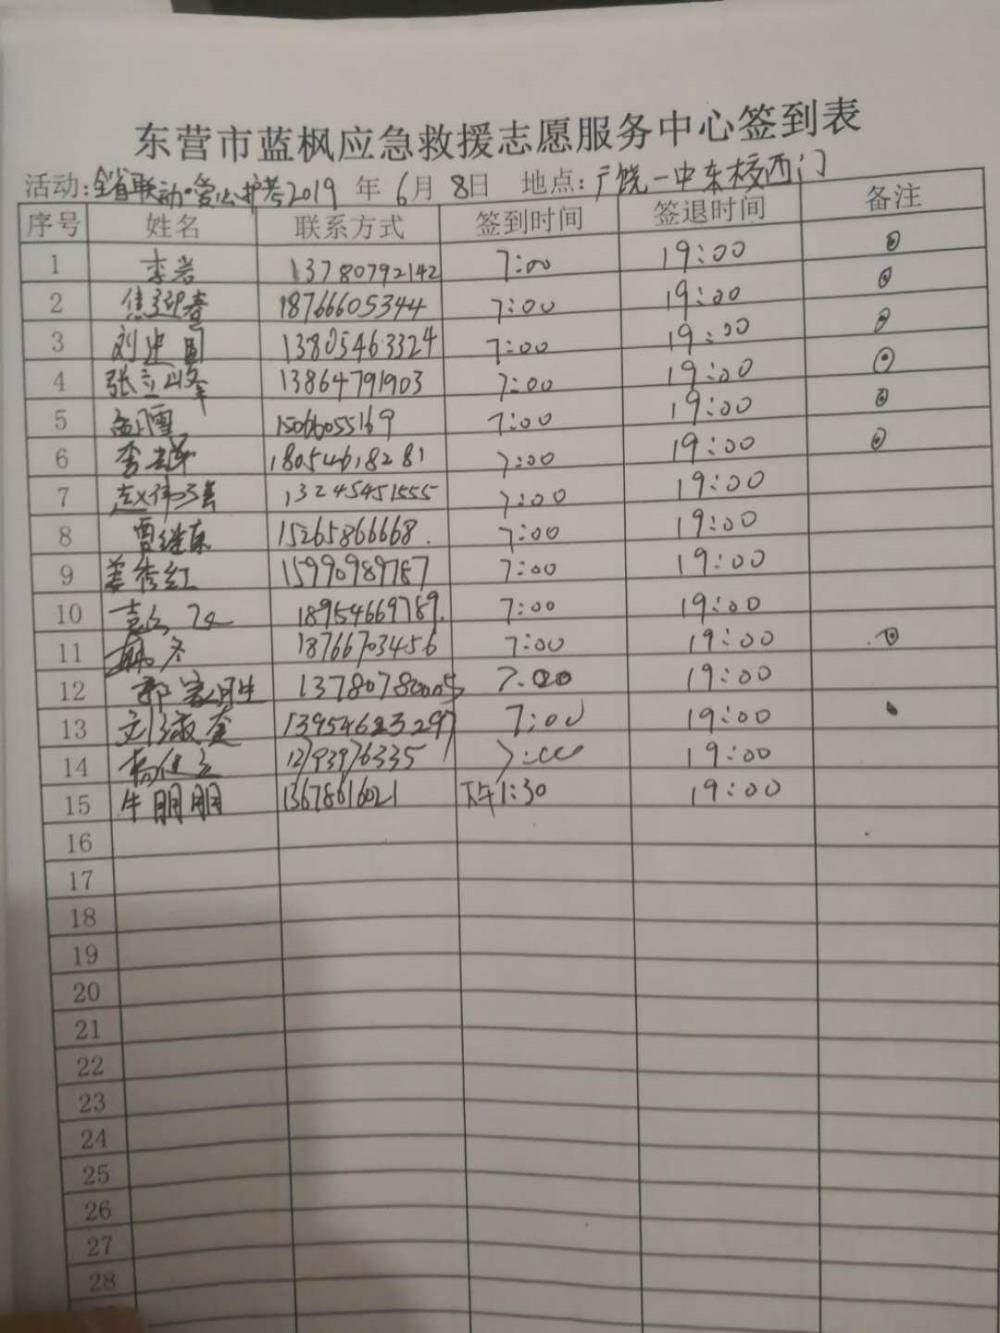 东营市蓝枫应急救援志愿服务中心签到表
活动:全省联动·爱心护考2019年6月8日 地点:广饶一中东校西门
序号 姓名 联系方式 签到时间 签退时间 备注
1 李岩 13780792142 7:00 19:00
2 焦迎春 18766605344 7:00 19:00
3 刘建国 13805463324 7:00 19:00
4 张立峰 13864791903 7:00 19:00
5 15066055169 7:00 19:00
6 18054618281 7:00 19:00
7 13245451555 7:00 19:00
8 曹继康 15265866668. 7:00 19:00
9 姜秀红 15990989787 7:00 19:00
10 18954669789. 7:00 19:00
11 18766703456 7:00 19:00
12 13780780005 7:00 19:00
13 刘淑奎 13954623297 7:00 19:00
14 7:00 19:00
15 牛朋朋 13678616021 下午1:30 19:00
16
17
18
19
20
21
22
23
24
25
26
27
28